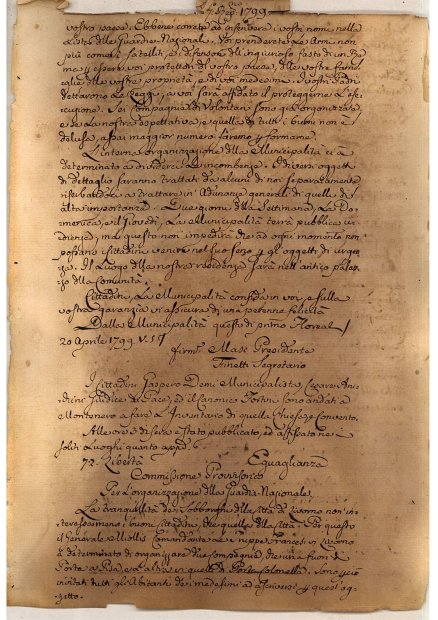 1799
vostro paese. Ebbene correte ad inscrivere i vostri nomi nella
Lista della Guardia Nazionale. Voi prenderete Le Armi non
più come i satelliti, ed i difensori dell'ingiurioso fasto di un Re-
me, per essere voi protettori del vostro paese, delle vostre fami-
glie, delle vostre proprietà, e di voi medesimi. I vostri Padri
dettarono Le Leggi, a voi sarà affidato il proteggerne L'ese-
cuzione. Sei Compagnie di Volontari sono già organizzate
e se La nostra aspettativa, e quella di tutti i buoni non è
delusa, assai maggior numero faremo per formarne.
L'interna organizzazione della Municipalità ci à
determinato a dividerci Le incombenze. I diversi oggetti
di dettaglio saranno trattati da alcuni di noi separatamente
riserbandoci a trattare in Adunanze generali di quelli di
alta importanza. Due giorni della Settimana La Do-
menica, e il Giovedì, La Municipalità terrà pubblica u-
dienza, ma questo non impedirà che ad ogni momento non
possano i Cittadini venire nel suo seno per gli oggetti di urgen-
za. Il Luogo della nostra residenza sarà nell'antico palaz-
zo della Comunità.
Cittadini, La Municipalità confida in voi, e sulla
vostra garanzia vi assicura di una perenne felicità
Dalla Municipalità questo dì primo Floreal
20 Aprile 1799. V. S.
firmt. Masi Presidente
Finetti Segretario
I Cittadini Gaspero Demi Municipalista, Cesare An-
dreini Giudice di Pace, ed il canonico Fortini sono andati a
Montenero a fare L'Inventario di quella Chiesa, e Convento.
Alle ore è stato pubblicato, ed affissato nei
soliti Luoghi quanto appo.
72. Libertà Eguaglianza
Commissione Provvisorio
Per L'organizzazione della Guardia Nazionale
La tranquillità dei Sobborghi della Città di Livorno non in-
teressa meno i buoni Cittadini, che quella della Città. Per questo
il Generale Miollis Comandante Le Truppe Francesi in Livorno
à determinato di organizzare due Compagnie, che una fuori di
Porta a Pisa, e L'altra in quello di Porta Colonnella. Sono per ciò
invitati tutti gli Abitanti dei medesimi ad ascriversi per quest'og-
getto.